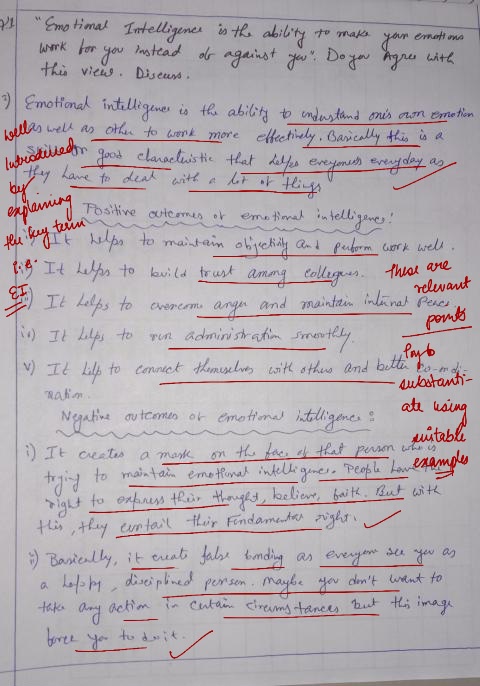 Q1 "Emotional Intelligence is the ability to make your emotions
work for you instead of against you". Do you Agree with
this view. Discuss.
Emotional intelligence is the ability to understand one's own emotion
as well as other to work more effectively. Basically this is a
skill or good characteristic that helps everyones everyday as
they have to deal with a lot of things
well
introduced
by
explaining
the key term
i.e.
EI
Positive outcomes of emotional intelligence:
i) It helps to maintain objectivity and perform work well.
ii) It helps to build trust among collegues.
iii) It helps to overcome anger and maintain internal Peace
iv) It helps to run administration smoothly.
v) It help to connect themselves with others and better co-ordi-
nation.
these are
relevant
points
substanti-
ate using
suitable
examples
Negative outcomes of emotional intelligence:
i) It creates a mask on the face of that person who is
trying to maintain emotional intelligence. People have the
right to express their thought, believe, faith. But with
this, they curtail their Fundamental right.
ii) Basically, it create false bonding as everyone see you as
a happy, disciplined person. Maybe you don't want to
take any action in certain circumstances but this image
force you to do it.